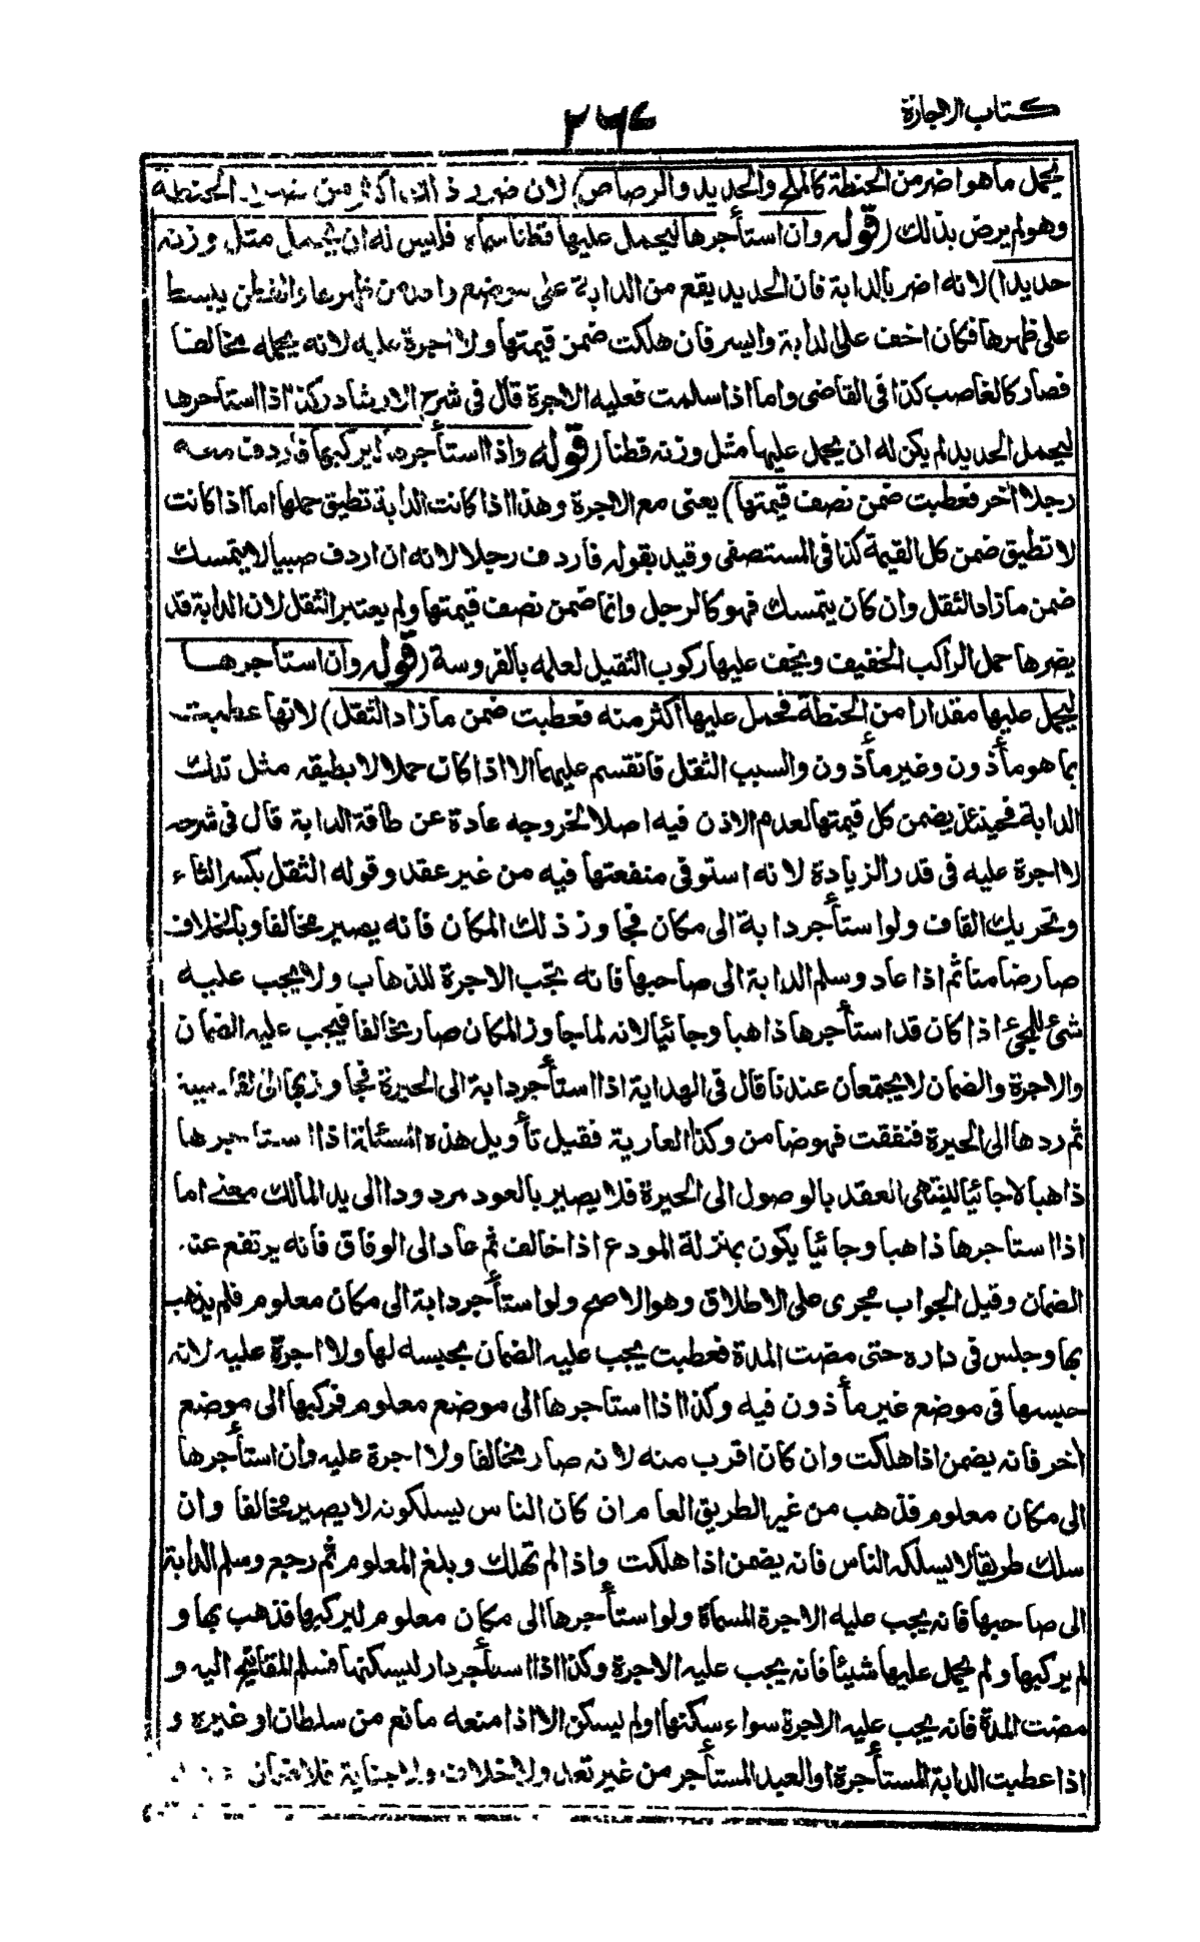 كتاب الاجارة
٢٦٤
يحمل ما هو اضر من الحنطة كالملح والحديد والرصاص) لان ضرر ذلك اكثر من ضرر الحنطة
وهو لم يرض بذلك (قوله وان استأجرها ليحمل عليها قطنا سماه فليس له ان يحمل مثل وزنه
حديدا) لانه اضر بالدابة فان الحديد يقع من الدابة على موضع واحد من ظهرها والقطن ينبسط
على ظهرها فكان اخف على الدابة وايسر فان هلكت ضمن قيمتها ولا اجرة عليه لانه يحمله مخالفا
فصار كالغاصب كذا فى القاضى واما اذا سلمت فعليه الاجرة قال فى شرح الارشاد وكذا اذا استأجرها
ليحمل الحديد لم يكن له ان يحمل عليها مثل وزنه قطنا (قوله واذا استأجرها ليركبها فاردف معه
رجلا آخر فعطبت ضمن نصف قيمتها) يعنى مع الاجرة وهذا اذا كانت الدابة تطيق حملها اما اذا كانت
لا تطيق ضمن كل القيمة كذا فى المستصفى وقيد بقوله فاردف رجلا لانه ان اردف صبيا لا يتمسك
ضمن ما زاد الثقل وان كان يتمسك فهو كالرجل وانما ضمن نصف قيمتها ولم يعتبر الثقل لان الدابة قد
يضرها حمل الراكب الخفيف ويخف عليها ركوب الثقيل لعلمه بالفروسة (قوله وان استأجرها
ليحمل عليها مقدارا من الحنطة فحمل عليها اكثر منه فعطبت ضمن ما زاد الثقل) لانها عطبت
بما هو مأذون وغير مأذون والسبب الثقل فانقسم عليهما الا اذا كان حملا لا يطيقه مثل تلك
الدابة فحينئذ يضمن كل قيمتها لعدم الاذن فيه اصلا لخروجه عادة عن طاقة الدابة قال فى شرحه
لا اجرة عليه فى قدر الزيادة لانه استوفى منفعتها فيه من غير عقد وقوله الثقل بكسر الثاء
وتحريك القاف ولو استأجر دابة الى مكان فجاوز ذلك المكان فانه يصير مخالفا وبالخلاف
صار ضامنا ثم اذا عاد وسلم الدابة الى صاحبها فانه تجب الاجرة للذهاب ولا يجب عليه
شئ للمجئ اذا كان قد استأجرها ذاهبا وجائيا لانه لما جاوز المكان صار مخالفا فيجب عليه الضمان
والاجرة والضمان لا يجتمعان عندنا قال فى الهداية اذا استأجر دابة الى الحيرة فجاوز بها الى القادسية
ثم ردها الى الحيرة فنفقت فهو ضامن وكذا العارية فقيل تأويل هذه المسئلة اذا استاجرها
ذاهبا لا جائيا لينتهى العقد بالوصول الى الحيرة فلا يصير بالعود مردودا الى يد المالك معنى اما
اذا استاجرها ذاهبا وجائيا يكون بمنزلة المودع اذا خالف ثم عاد الى الوفاق فانه يرتفع عنه
الضمان وقيل الجواب مجرى على الاطلاق وهو الاصح ولو استأجر دابة الى مكان معلوم فلم يذهب
بها وجلس فى داره حتى مضت المدة فعطبت يجب عليه الضمان بحبسه لها ولا اجرة عليه لانه
حبسها فى موضع غير مأذون فيه وكذا اذا استاجرها الى موضع معلوم فركبها الى موضع
آخر فانه يضمن اذا هلكت وان كان اقرب منه لانه صار مخالفا ولا اجرة عليه وان استأجرها
الى مكان معلوم فذهب من غير الطريق العام ان كان الناس يسلكونه لا يصير مخالفا وان
سلك طريقا لا يسلكه الناس فانه يضمن اذا هلكت واذا لم تهلك وبلغ المعلوم ثم رجع وسلم الدابة
الى صاحبها فانه يجب عليه الاجرة المسماة ولو استأجرها الى مكان معلوم ليركبها فذهب بها و
لم يركبها ولم يحمل عليها شيئا فانه يجب عليه الاجرة وكذا اذا استأجر دار ليسكنها فسلم المفاتيح اليه و
مضت المدة فانه يجب عليه الاجرة سواء سكنها او لم يسكن الا اذا منعه مانع من سلطان او غيره و
اذا عطبت الدابة المستأجرة او العبد المستأجر من غير تعد ولا خلاف ولا جناية فلا ضمان